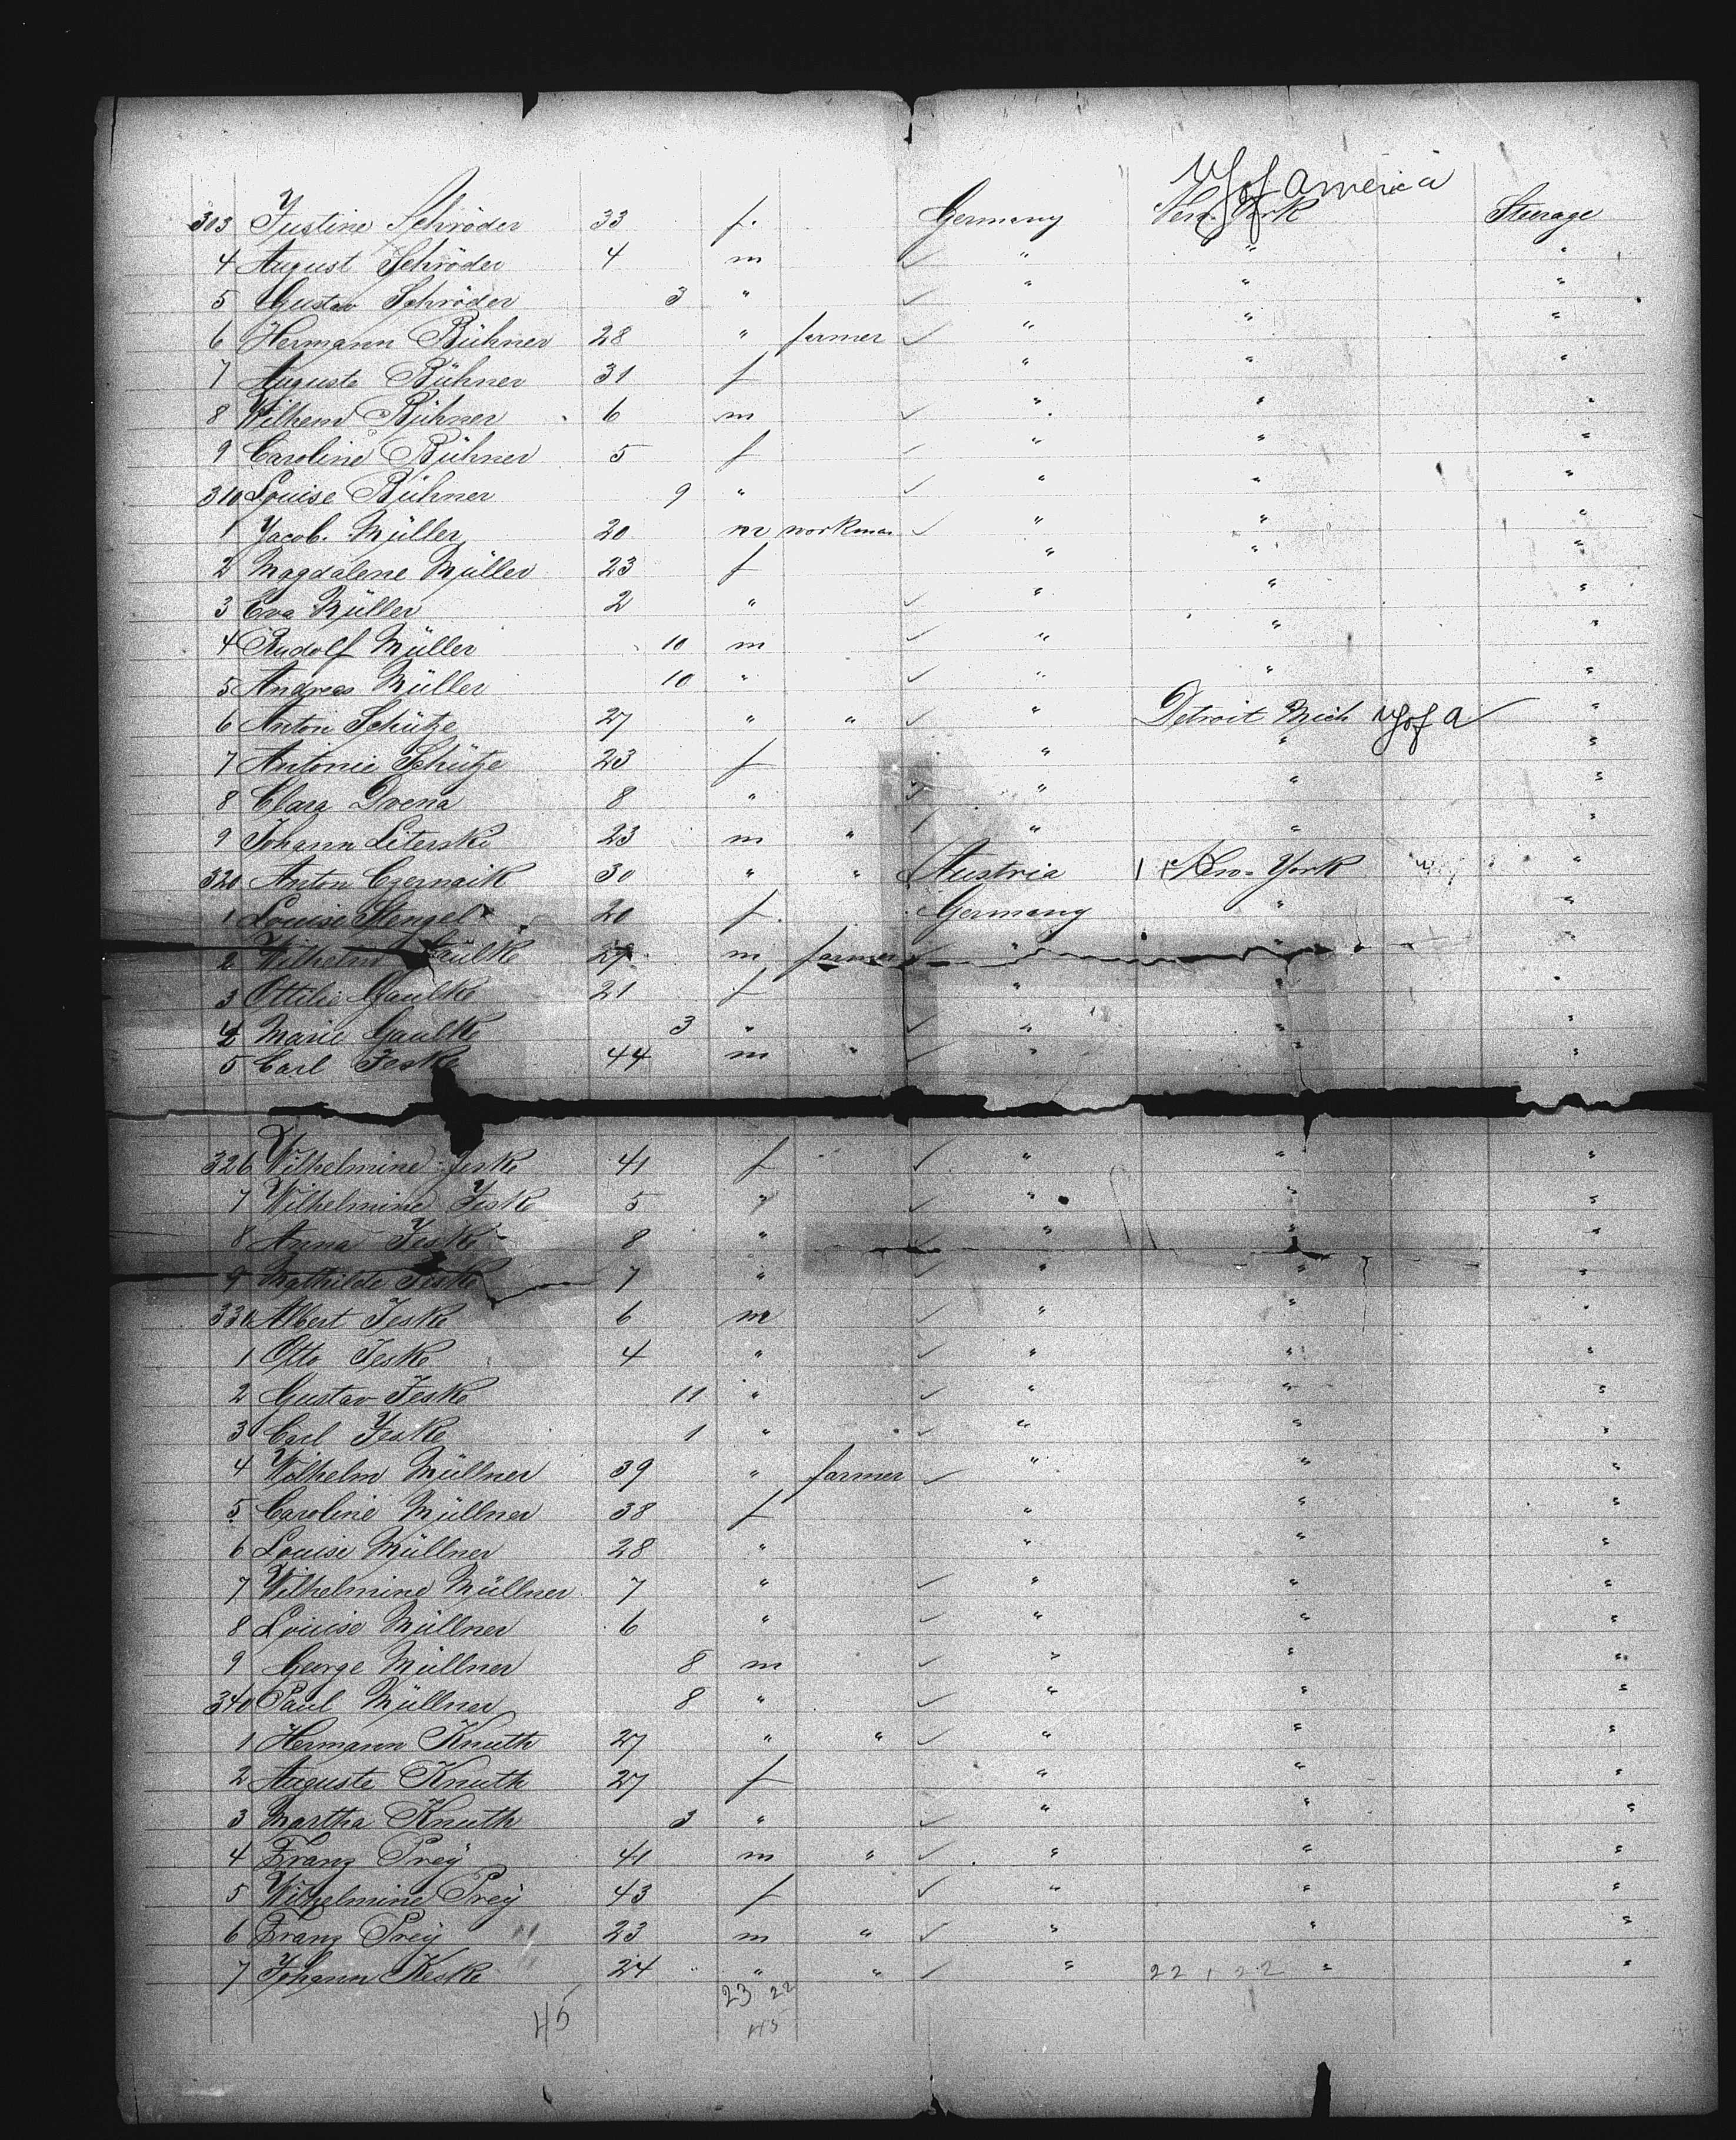 U S of America
303 Justine Schröder 33 f. Germany New-York Steerage
4 August Schröder 4 m ✓ " " "
5 Gustav Schröder 3 " ✓ " " "
6 Hermann Bühner 28 " farmer ✓ " " "
7 Auguste Bühner 31 f " " "
8 Wilhem Bühner 6 m ✓ " " "
9 Caroline Bühner 5 f ✓ " " "
310 Louise Bühner 9 " ✓ " " "
1 Jacob. Müller 20 m workman ✓ " " "
2 Magdalene Müller 23 f " " "
3 Eva Müller 2 " ✓ " " "
4 Rudolf Müller 10 m ✓ " " "
5 Andreas Müller 10 " ✓ " " "
6 Anton Schütze 27 " " ✓ " Detroit Mich U S of A "
7 Antonie Schütze 23 f " " "
8 Clara Drena 8 " ✓ " " "
9 Johann Literski 23 m " ✓ " " "
320 Anton Czernaik 30 " " Austria New-York "
1 Louise Stengel 20 f. Germany " "
2 Wilhelm 27 m farmer ✓ " " "
3 Ottilie Gaulke 21 f " " "
4 Marie Gaulke 3 " ✓ " " "
5 Carl Jeske 44 m " ✓ " " "
326 Wilhelmine Jeske 41 f ✓ " " "
7 Wilhelmine Jeske 5 " ✓ " " "
8 Anna Jeske 8 " ✓ " " "
9 Mathilde Jeske 7 " ✓ " " "
330 Albert Jeske 6 m ✓ " " "
1 Otto Jeske 4 " ✓ " " "
2 Gustav Jeske 11 " ✓ " " "
3 Carl Jeske 1 " ✓ " " "
4 Wilhelm Müllner 39 " farmer ✓ " " "
5 Caroline Müllner 38 f " " "
6 Louise Müllner 28 " " " "
7 Wilhelmine Müllner 7 " ✓ " " "
8 Louise Müllner 6 " ✓ " " "
9 George Müllner 8 m ✓ " " "
340 Paul Müllner 8 " ✓ " " "
1 Hermann Knuth 27 " " ✓ " " "
2 Auguste Knuth 27 f " " "
3 Martha Knuth 3 " ✓ " " "
4 Franz Prey 41 m " ✓ " " "
5 Wilhelmine Prey 43 f ✓ " " "
6 Franz Prey 23 m " ✓ " " "
7 Johann Keske 24 " " ✓ " "  "
23 22
45
45